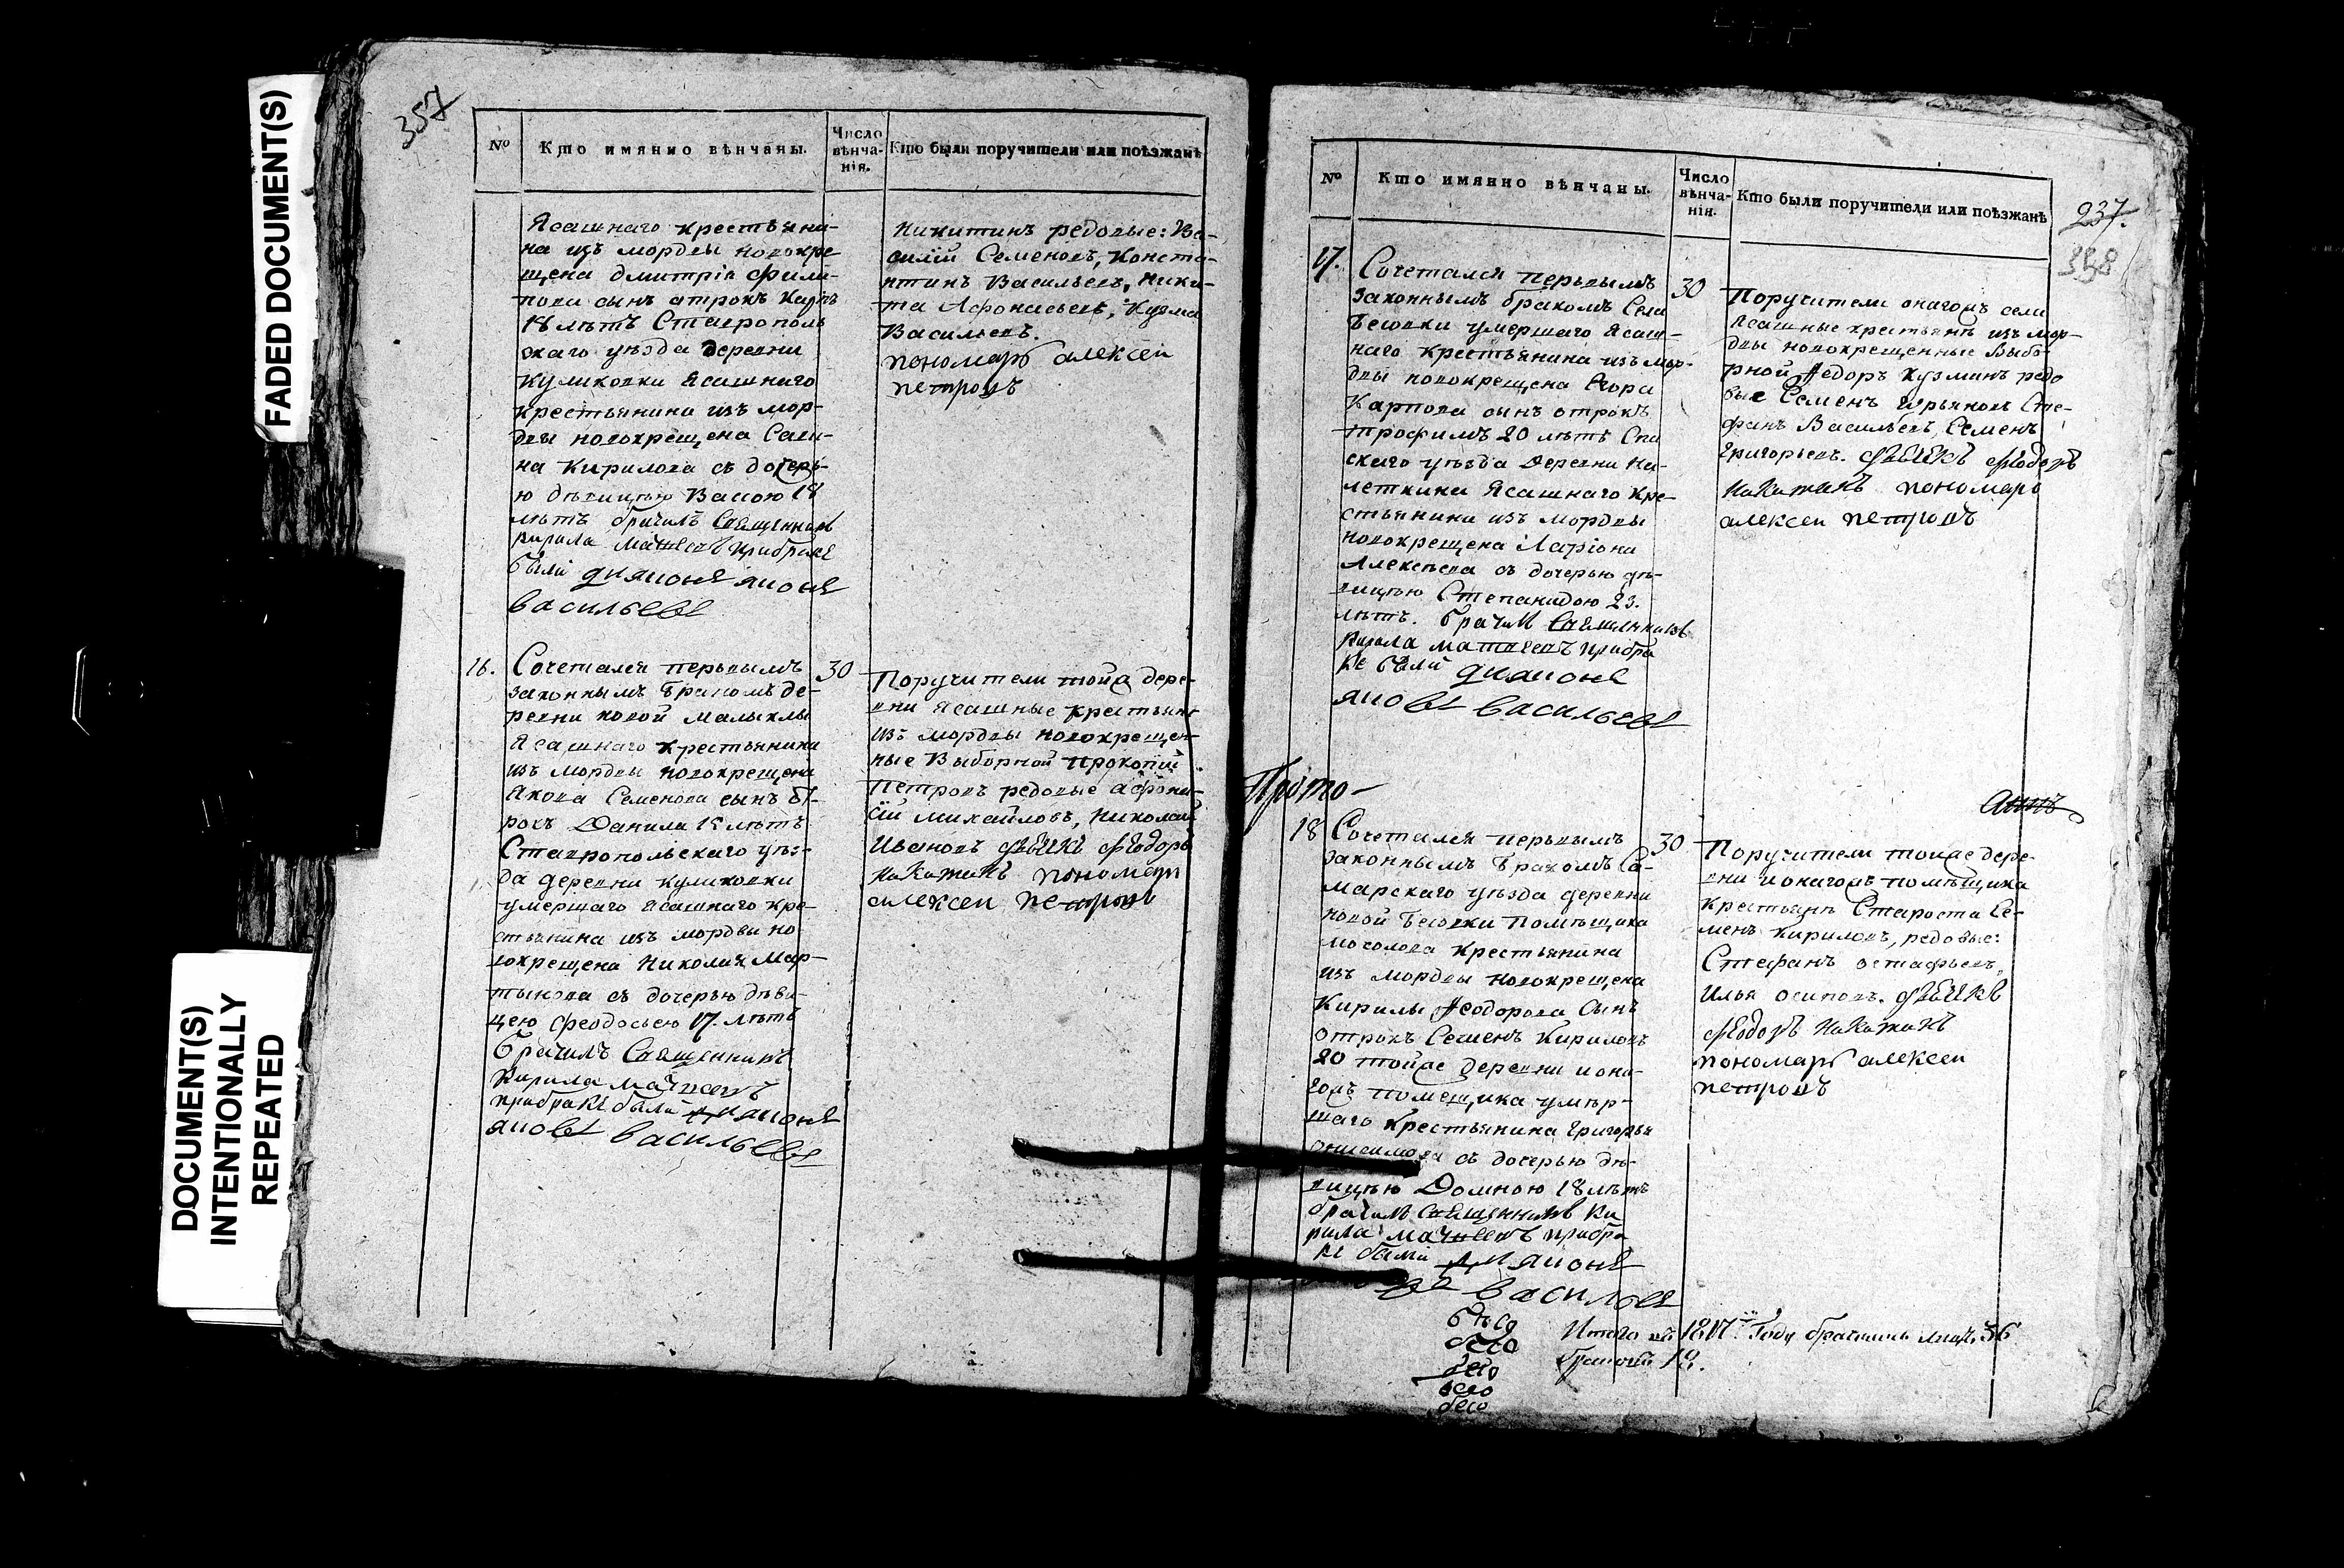 FADED DOCUMENT(S)
DOCUMENT(S)
INTENTIONALLY
REPEATED
357
№
Кто имянно вѣнчаны.
Число
вѣнча-
нія.
Кто были поручители или поѣзжанѣ
Ясашнаго крестьяни-
на изъ мордвы новокре
щена Дмитрія Фили-
пова сынъ отрокъ Карпъ
18 лѣтъ Ставрополь
скаго уѣзда деревни
Куликовки Ясашнаго
крестьянина изъ мор-
двы новокрещена
на Кирилова съ дочерь-
ю дѣвицею 18
лѣтъ брачилъ Священникъ
Кирила Матвеевъ прибраке
были диаконе яковe
васильеве
Никитинъ редовые: Ва-
силій Семеновъ, Конста-
нтинъ Васильевъ, Ники-
та Афонасьевъ, Кузма
Васильевъ.
пономарь алексеи
петровъ
16.
Сочетался первымъ
законнымъ бракомъ де-
ревни новой Малыклы
Ясашнаго крестьянина
изъ мордвы новокрещена
Якова Семенова сынъ от-
рокъ Данила лѣтъ
Ставропольскаго уѣз-
да деревни Куликовки
умершаго ясашнаго кре-
стьянина изъ мордвы но-
вокрещена Николая Мар-
тынова съ дочерью дѣви-
цею Феодосьею 17. лѣтъ
брачилъ Священникъ
Кирила матвеевъ
прибраке были диаконе
якове васильеве
30
Поручители тойже дере-
вни Ясашные крестьяне
изъ мордвы новокрещен-
ные Выборной Прокопій
Петровъ редовые Афона-
сій Михайловъ, Николай
Ивановъ дьячекъ феодоръ
никитинъ пономарь
алексеи петровъ
№
Кто имянно вѣнчаны.
Число
вѣнча-
нія.
Кто были поручители или поѣзжанѣ
237.
358
17.
Сочетался первымъ
законнымъ бракомъ Села
Бесовки умершаго Ясаш-
наго крестьянина изъ мор-
двы новокрещена Егора
Карпова сынъ отрокъ
Трофимъ 20 лѣтъ Ста
скаго уѣзда деревни
леткина Ясашнаго кре-
стьянина изъ мордвы
новокрещена Ларіона
Алексѣева съ дочерью дѣ-
вицею Степанидою 23.
лѣтъ. брачилъ Священникъ
Кирила матвеевъ прибра
ке были диаконе
якове васильеве
30
Поручители онагожъ села
Ясашные крестьяне изъ мор-
двы новокрещенные Выбо-
рной Федоръ Кузминъ редо
вые Семенъ Юрьяновъ Сте-
фанъ Васильевъ, Семенъ
Григорьевъ. дьячекъ феодоръ
никитинъ пономарь
алексеи петровъ
Прото-
18
Сочетался первымъ
законнымъ бракомъ Са-
марскаго уѣзда деревни
новой Бесовки помѣщика
крестьянина
изъ мордвы новокрещена
Кирилы Феодорова сынъ
отрокъ Семенъ Кириловъ
20 тойже деревни и она-
гожъ помещика умер-
шаго крестьянина Григорья
съ дочерью дѣ-
вицею Домною 18 лѣтъ
брачилъ священникъ Ки
рила матвеевъ прибра
ке были диаконе
васильеве
30
Поручители тойже дере-
вни и онагожъ помѣщика
крестьяне Староста Се-
менъ Кириловъ, редовые:
Стефанъ Остафьевъ,
Илья Осиповъ. дьячекъ
феодоръ никитинъ
пономарь алексеи
петровъ
Итого въ 1817. Году брачилось лицъ 36
браковъ 18.